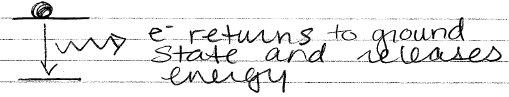 e- returns to ground
State and releases
energy